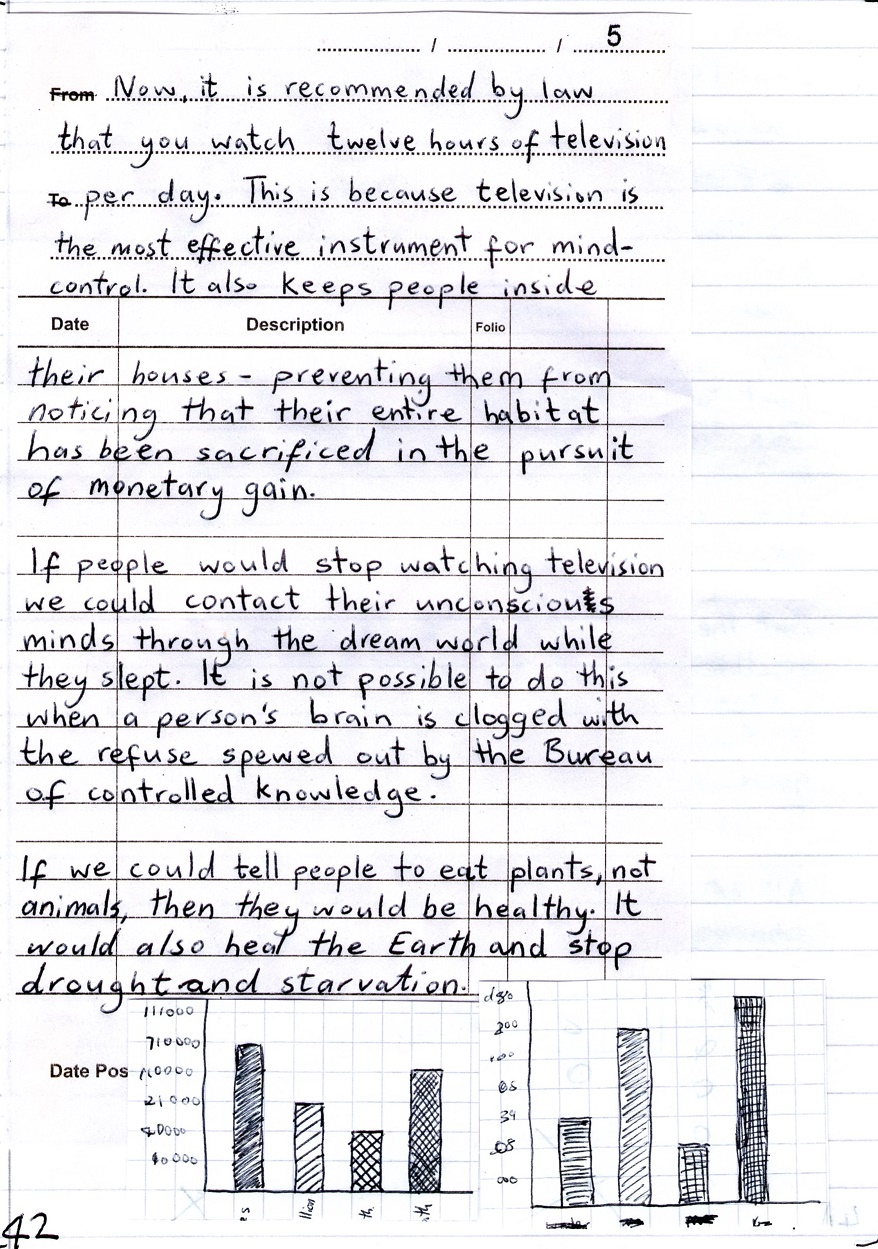 / / 5
From Now, it is recommended by law
that you watch twelve hours of television
To per day. This is because television is
the most effective instrument for mind-
control. It also keeps people inside
Date Description Folio
their houses - preventing them from
noticing that their entire habitat
has been sacrificed in the pursuit
of monetary gain.
If people would stop watching television
we could contact their unconscious
minds through the dream world while
they slept. It is not possible to do this
when a person's brain is clogged with
the refuse spewed out by the Bureau
of controlled knowledge.
If we could tell people to eat plants, not
animals, then they would be healthy. It
would also heal the Earth and stop
drought and starvation.
111000
710000
21000
40000
Date Pos
200
65
39
000
es
llion
th
42